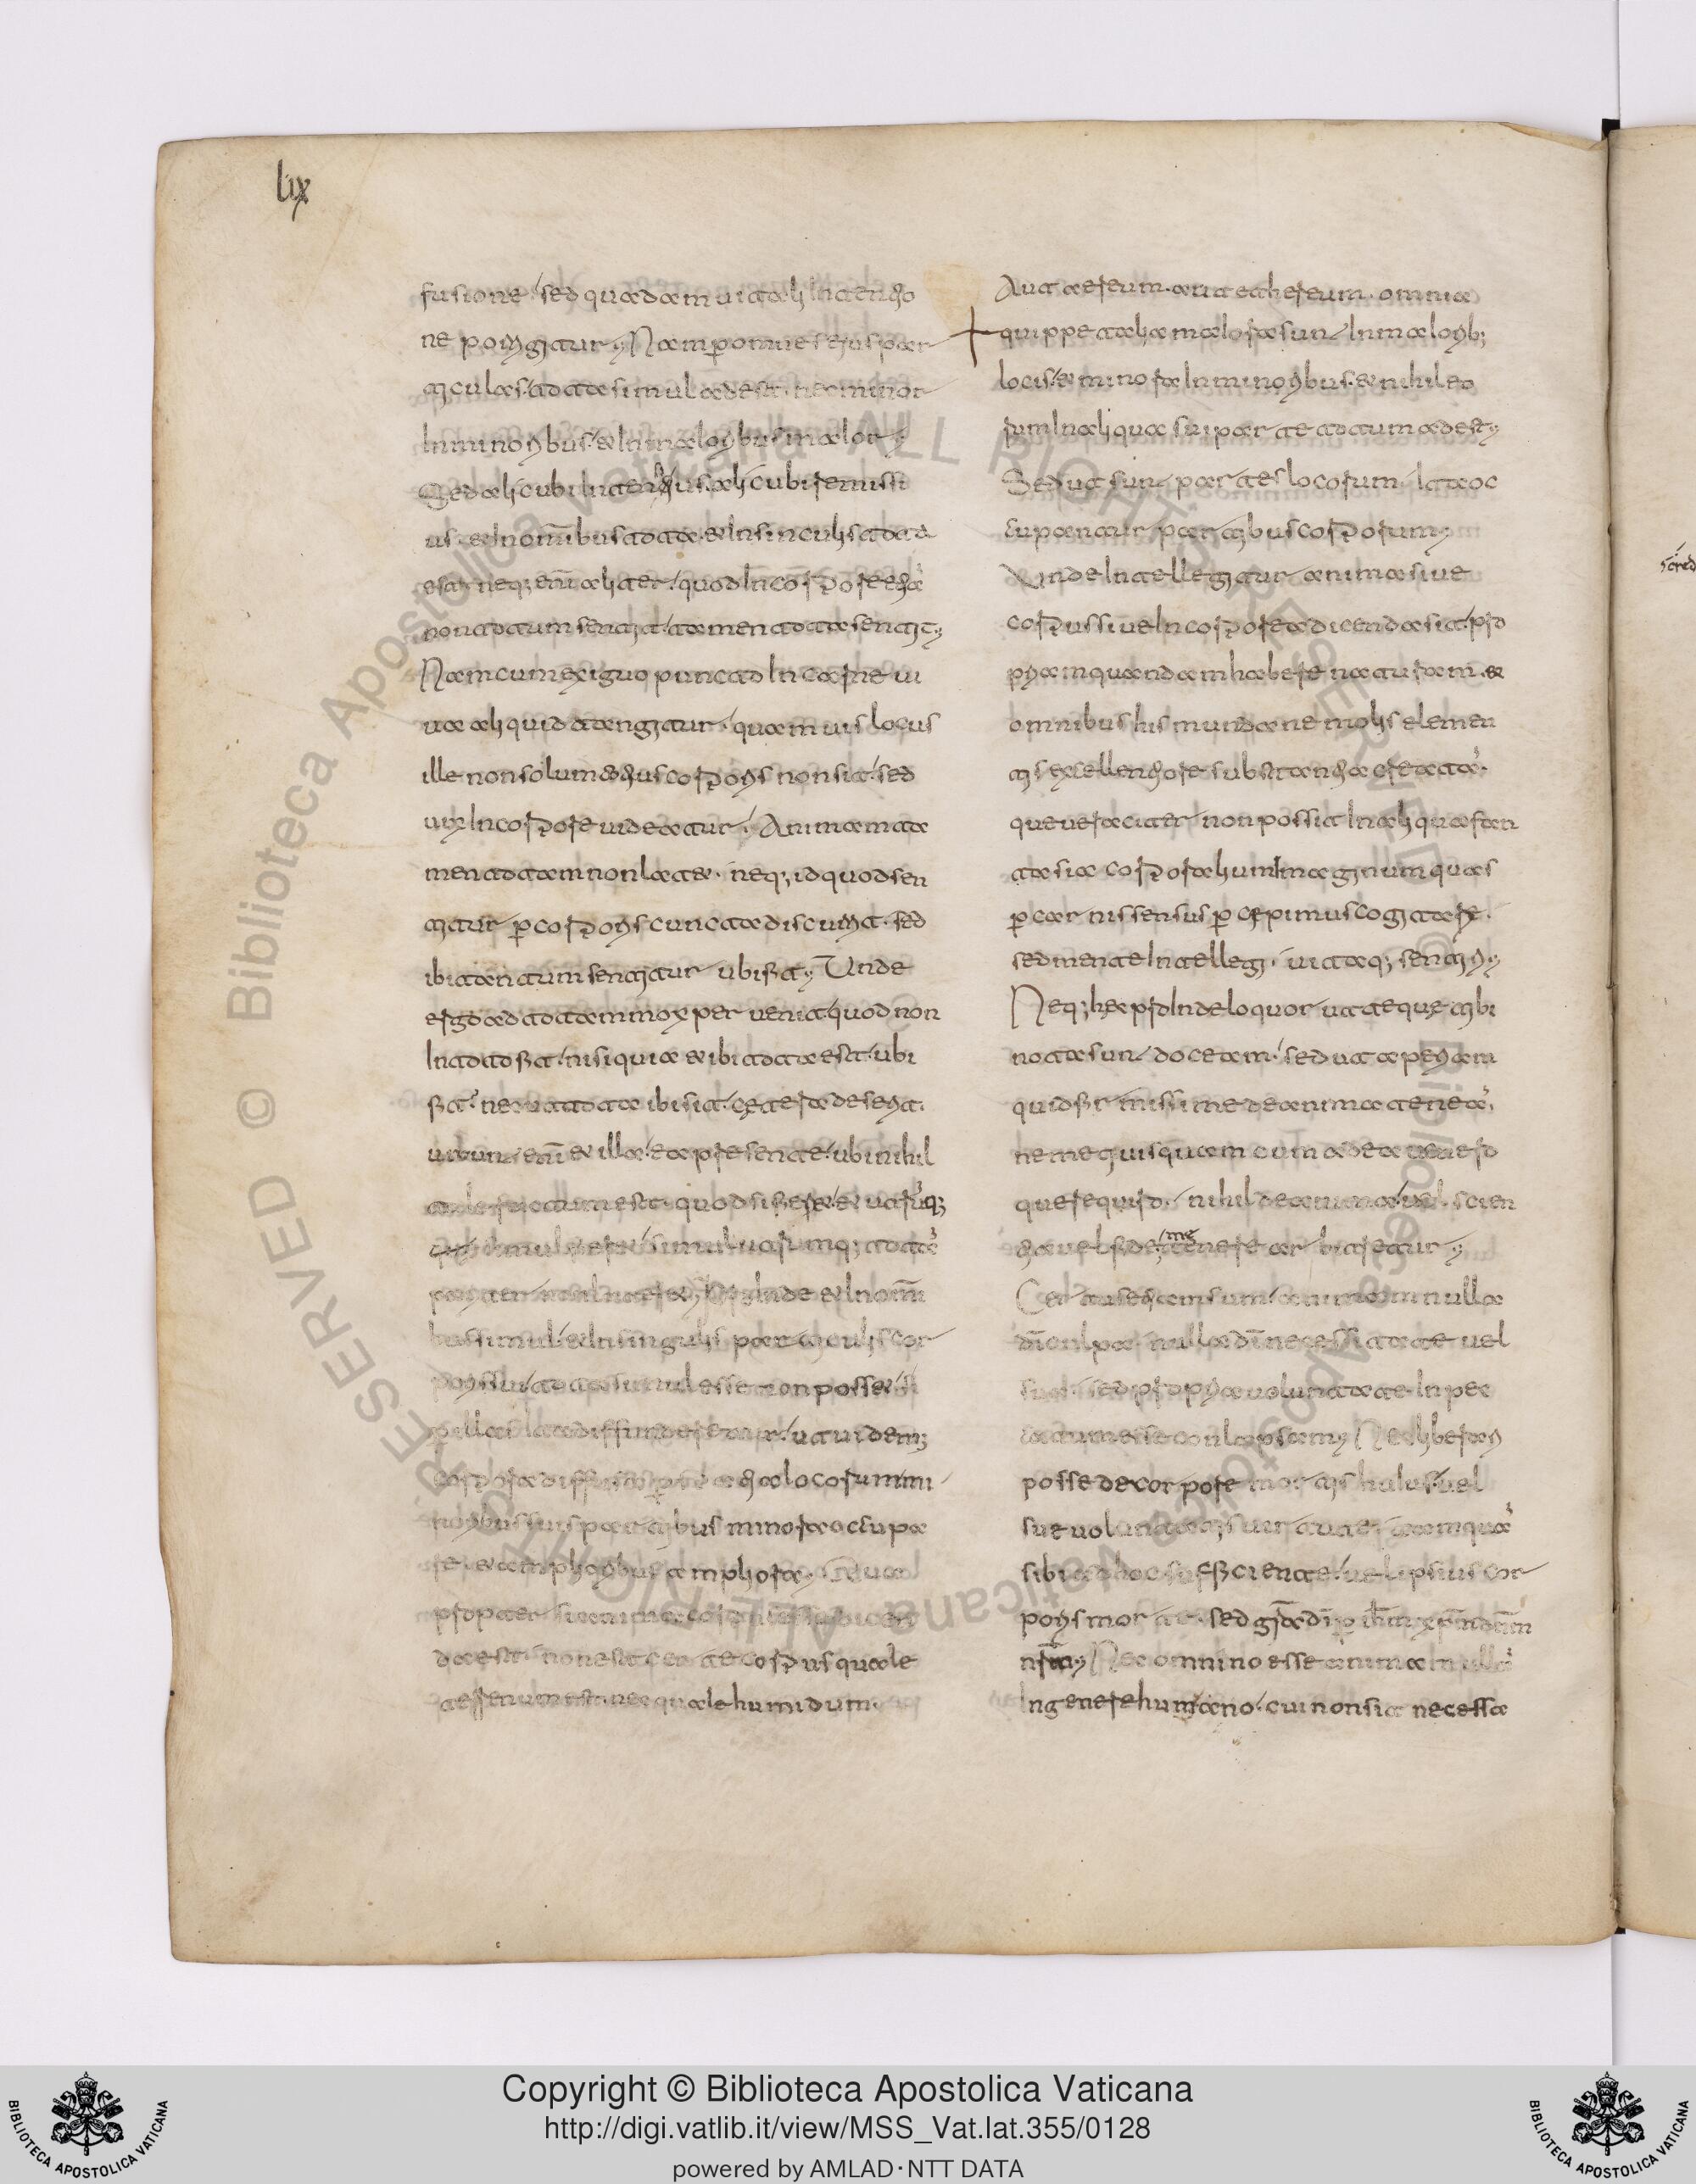 lix
fusione sed quadam uitali intentio
ne porrigitur; Nam p omnes eius par
ticulas tota simul adest. nec minor
in minoribus. et in maioribus maior;
Sed alicubi intentius. alicubi remissi
us. et in omnibus tota. et in singulis tota
est. neq; eni aliter quod in corpore etia
non totum sentit. tamen tota sentit;
Nam cum exiguo puncto in carne ui
ua aliquid tangitur. quamuis locus
ille non solum totius corporis non sit. sed
uix in corpore uideatur. Animam ta
men totam non latet. neq; id quod sen
titur p corporis cuncta discurrit. sed
ibi tantum sentitur ubi fit; Unde
ergo ad totam mox peruenit quod non
in toto fit. nisi quia et ibi tota est. ubi
fit. nec ut tota ibi sit. cetera deserit.
uiuunt eni et illa ea presente. ubi nihil
tale factum est. quod si fieret et utruq;
simul fieret simul utrumq; tota
pariter non lateret; Proinde et in omni
bus simul. et in singulis particulis cor
poris sui tota simul esse non posset si
p illas ita diffunderetur. ut uidem;
corpora diffusa p spatia locorum mi
noribus suis partibus minora occupa
re. et amplioribus ampliora; Qua
propter si anima corpus esse dicen
da est. non est certe corpus quale
terrenum est. nec quale humidum.
Aut aereum. aut ethereum. omnia
quippe talia maiora sunt in maiorib;
locis. et minora in minoribus. et nihil eo
rum in aliqua sui parte totum adest;
Sed ut sunt partes locorum ita oc
cupantur partibus corporum;
Unde intellegitur anima siue
corpus siue incorporea dicenda sit. pro
priam quandam habere naturam. et
omnibus his mundane molis elemen
tis excellentiore substantia creata.
que ueraciter non possit in aliqua fan
tasia corporalium imaginum quas
p carnis sensus p cepimus cogitari.
sed mente intellegi. uitaq; sentiri;
Neq; hec proinde loquor ut te que tibi
nota sunt doceam. sed ut aperiam
quid firmissime de anima tenea.
ne me quisquam cum ad ea uenero
que requiro. nihil de anima uel scien
tia uel fide me tenere arbitretur;
Certus etiam sum animam nulla
di culpa. nulla di necessitate uel
sua. sed propria uoluntate in pec
catum esse conlapsam; Nec liberari
posse de corpore mortis huius uel
sue uoluntatis uirtute. tamqua
sibi ad hoc sufficiente. uel ipsius cor
poris morte. sed gra di p ihm xpm dnm
nrm; Nec omnino esse animam ulla
in genere humano. cui non sit necessa
Copyright © Biblioteca Apostolica Vaticana
http://digi.vatlib.it/view/MSS_Vat.lat.355/0128
powered by AMLAD·NTT DATA